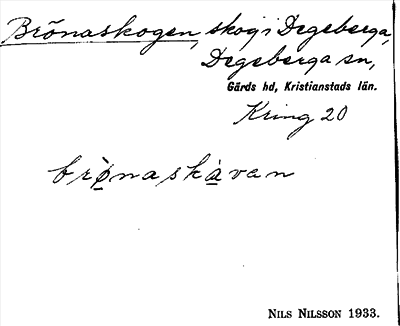 Brönaskogen, skog i Degeberga,
Degeberga sn,
Gärds hd, Kristianstads län.
Kring 20
brò̱naskàvan
Nils Nilsson 1933.